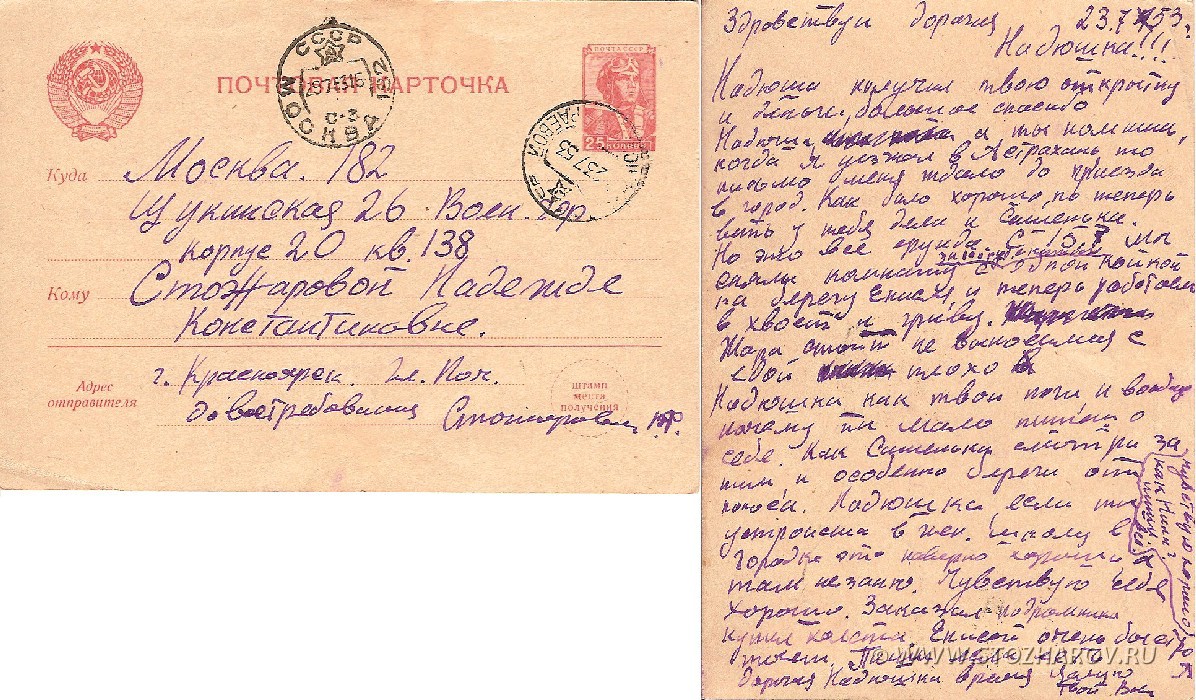 ПОЧТОВАЯ КАРТОЧКА
ПОЧТА СССР
25 КОПЕЕК
СССР
МОСКВА
С-3
23 7 53
Куда Москва. 182
Щукинская 26 Воен. гор
корпус 20 кв. 138
Кому Стожаровой Надежде
Константиновне.
Адрес
отправителя
г. Красноярск. Гл. Поч.
довостребования Стожаров
штамп
места
получения
Здравствуй дорогая 23.7 53 г.
Надюшка!!!
Надюша получил твою открытку
и деньги, большое спасибо
Надюша а ты помнишь,
когда я уезжал в Астрахань то
письмо меня ждало до приезда
в город. Как было хорошо, но теперь
ведь у тебя дела и Сашенька.
Но это всё ерунда. С 15 7 мы
сняли комнату с одной койкой
на берегу Енисея, и теперь работаем
в хвост и гриву.
Жара стоит не выносимая с
едой плохо
Надюшка как твои почки и вообще
почему ты мало пишешь о
себе. Как Сашенька смотри за
ним и особенно береги от
поноса. Надюшка если ты
устроишься в школу в
городке это наверно хорошо
там не знаю. Чувствую себя
хорошо. Заказал подрамники
купил холста. Енисей очень быстро
течёт.
дорогая Надюшка время Целую
твой
чувствую
как
© WWW.STOZHAROV.RU